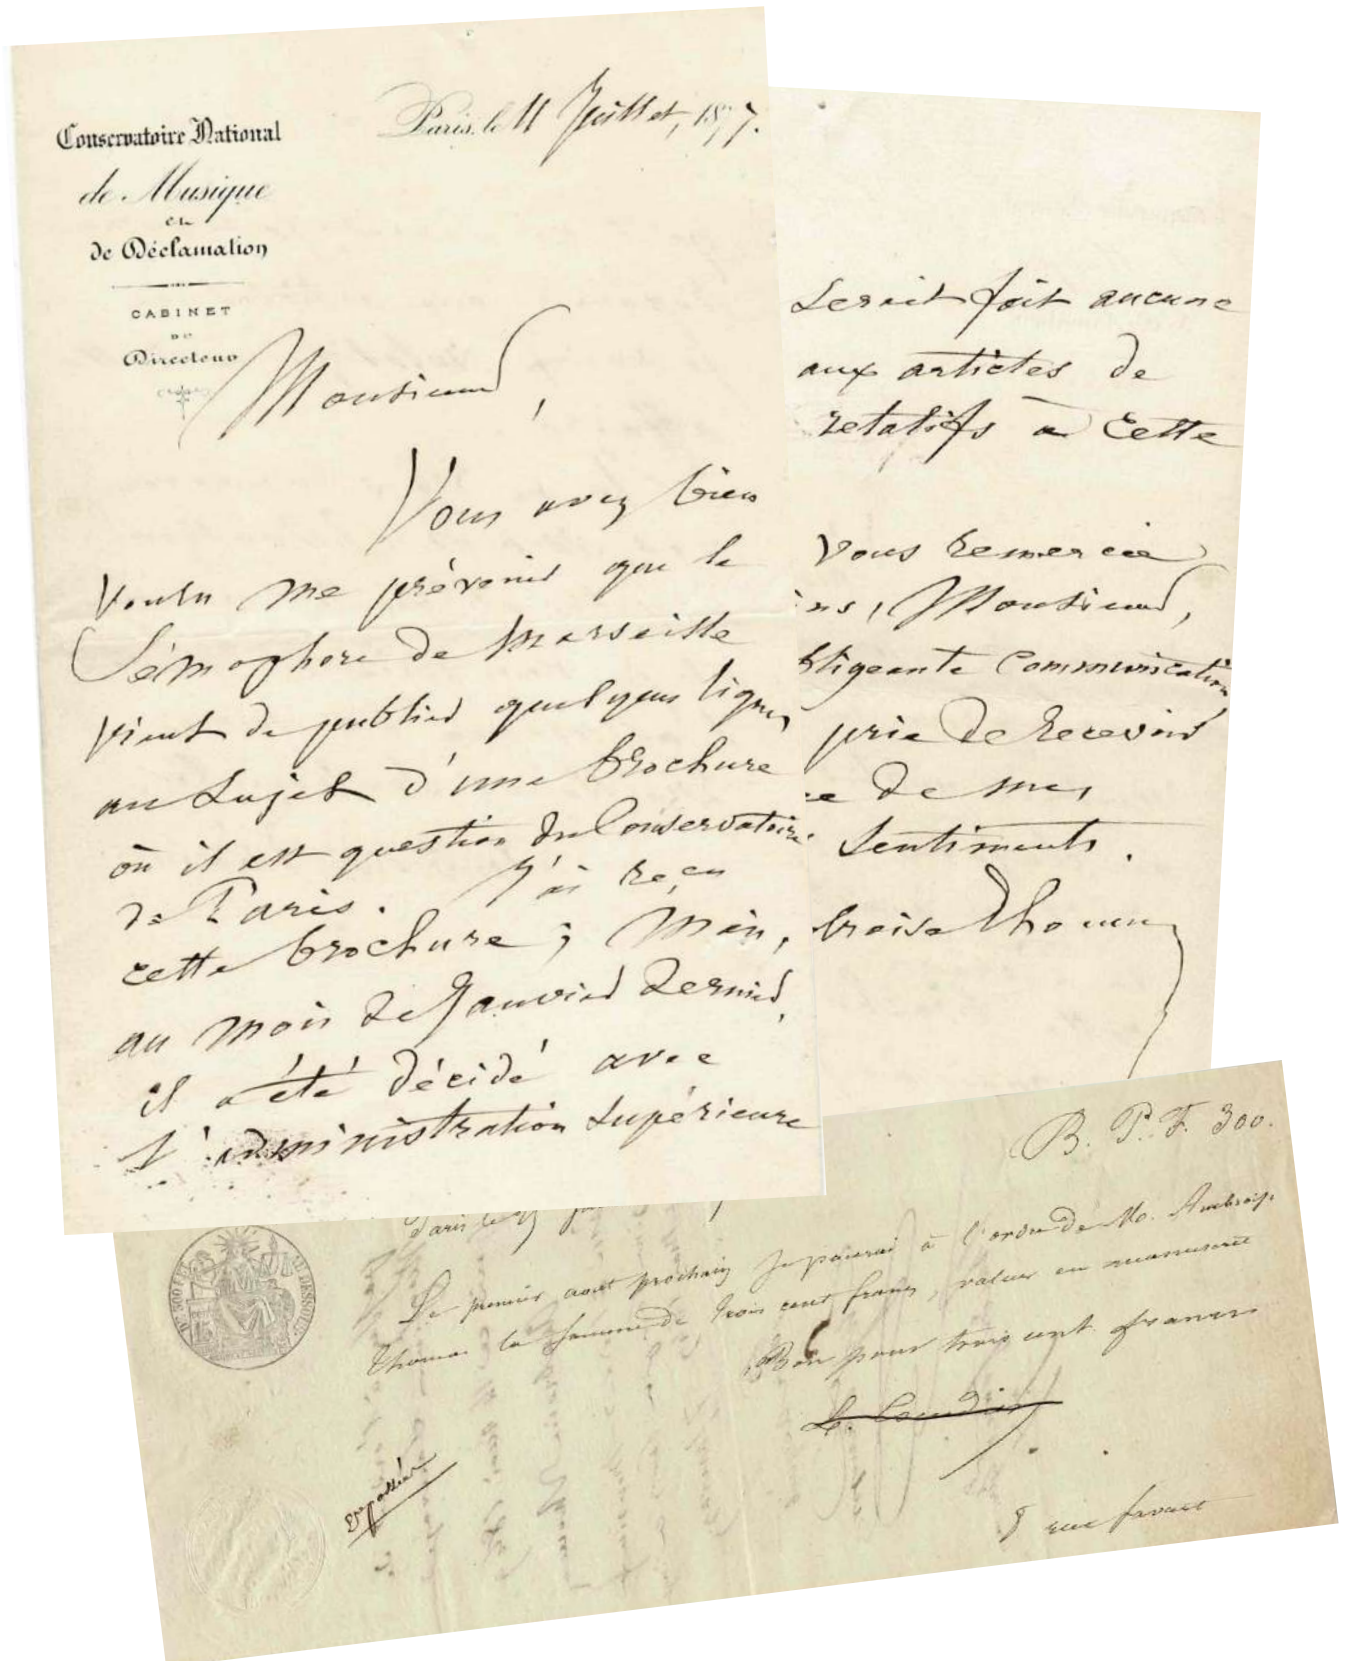 Conservatoire National
de Musique
et
de Déclamation
CABINET
DU
Directeur
Paris, le 11 Juillet, 1877.
Monsieur,
Vous avez bien
voulu me prévenir que le
Sémaphore de Marseille
vient de publier quelques lignes
au sujet d'une brochure
où il est question du Conservatoire
de Paris. J'ai reçu
cette brochure ; Mais,
au mois de Janvier dernier,
il a été décidé avec
l'administration supérieure
serait fait aucune
aux articles de
relatifs à cette
vous remercie
ns, Monsieur,
bligeante communication
prie de recevoir
ce de mes
sentiments.
broise Thomas
B. P. F. 300.
Paris le
Le premier aout prochain je paierai à l'ordre de Mr. Ambroise
Thomas la somme de trois cent francs, valeur en manuscrit
Bon pour trois cent francs
8 rue favart